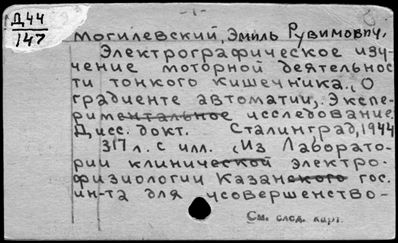 Д44
147
-1-
Могилевский, Эмиль Рувимович.
Электрографическое изу-
чение моторной деятельнос
ти тонкого кишечника., О
градиенте автоматии,. Экспе-
риментальное исследование.
Дисс. докт. Сталинград, 1944
317 л. с илл. , Из Лаборато-
рии клинической электро-
физиологии Казанского гос.
ин-та для усовершенство-
См. след. карт.